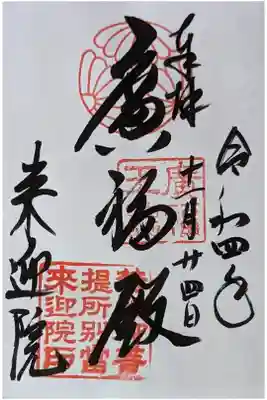 令和四年
十一月廿四日
奉拝
廣福殿
来迎院
提所別當
来迎院印